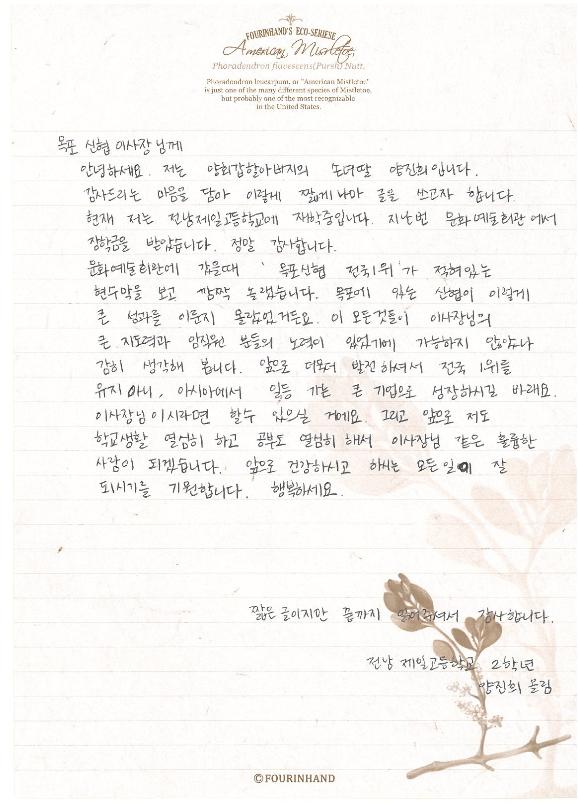 FOURINHAND'S ECO-SERIESE
American Mistletoe,
Phoradendron flavescens(Pursh) Nutt.
Phoradendron leucarpum, or "American Mistletoe"
is just one of the many different species of Mistletoe,
but probably one of the most recognizable
in the United States.
목포 신협 이사장님께
안녕하세요. 저는 양회갑할아버지의 손녀딸 양진희입니다.
감사드리는 마음을 담아 이렇게 짧게나마 글을 쓰고자 합니다.
현재 저는 전남제일고등학교에 재학중입니다. 지난번 문화예술회관에서
장학금을 받았습니다. 정말 감사합니다.
문화예술회관에 갔을때 '목포신협 전국1위'가 적혀있는
현수막을 보고 깜짝 놀랐습니다. 목포에 있는 신협이 이렇게
큰 성과를 이룬지 몰랐었거든요. 이 모든것들이 이사장님의
큰 지도력과 임직원 분들의 노력이 있었기에 가능하지 않았나
감히 생각해 봅니다. 앞으로 더욱더 발전하셔서 전국 1위를
유지 아니, 아시아에서 일등 가는 큰 기업으로 성장하시길 바래요.
이사장님이시라면 할수 있으실 거에요. 그리고 앞으로 저도
학교생활 열심히 하고 공부도 열심히 해서 이사장님 같은 훌륭한
사람이 되겠습니다. 앞으로 건강하시고 하시는 모든일이 잘
되시기를 기원합니다. 행복하세요.
짧은 글이지만 끝까지 읽어주셔서 감사합니다.
전남 제일고등학교 2학년
양진희 올림
©FOURINHAND